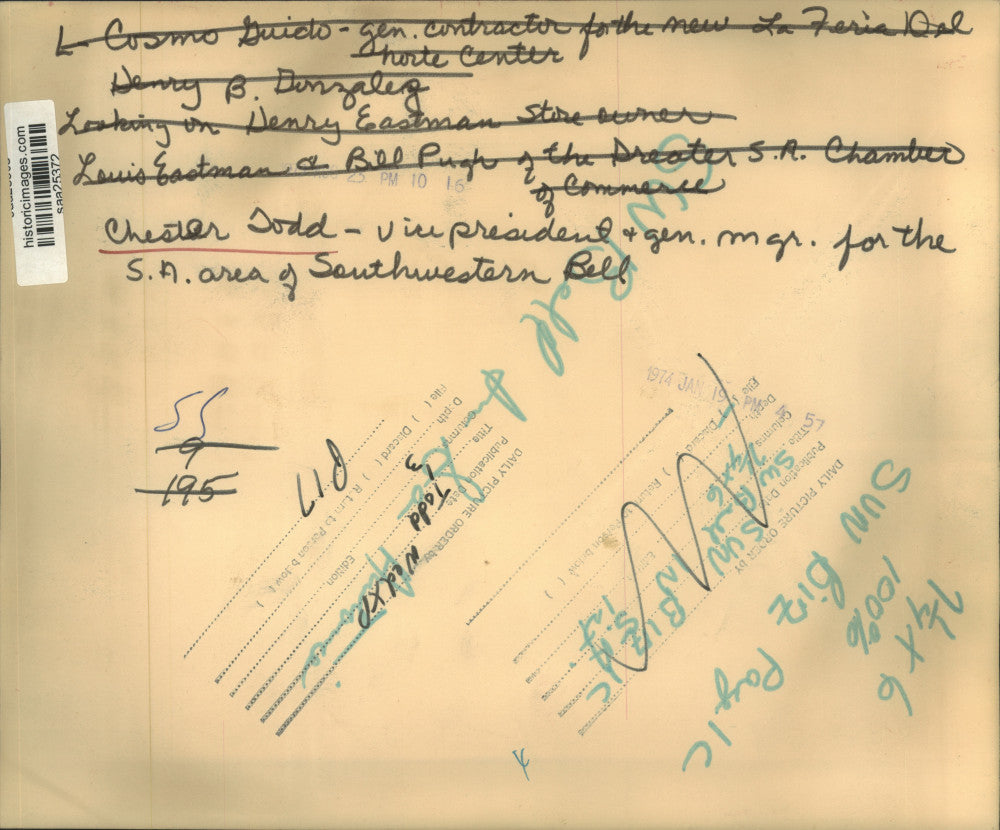 L- Cosmo Guido - gen. contractor for the new La Feria Del
Norte Center
Henry B. Gonzalez
Looking on Henry Eastman Store owner
Louis Eastman & Bill Pugh of the Greater S.A. Chamber
of Commerce
25 PM 10 16
Chester Todd - vice president & gen. mgr. for the
S.A. area of Southwestern Bell
historicimages.com
saa25372
SW Bell
55
9
195
1974 JAN 19 PM 4 57
DAILY PICTURE ORDER by
Publication Date
Title
Columns
Depth
File ( ) Discard ( ) Return to person below ( )
Edition
Todd
Wed XP
DAILY PICTURE ORDER BY
Publication Date
Title
Columns
File ( ) Discard ( ) Return
SW Bell
7 1/4 x 6
SUN
IN BIZ
1C
SUN
Biz
Pag 1C
100%
7 1/4 x 6